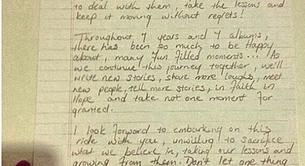 to deal with them, take the lessons and
keep it moving without regrets!
Throughout 7 years and 7 albums,
there has been so much to be happy
about, many fun filled moments... As
we continue this journey together, we'll
write new stories, share more laughs, meet
new people, tell more stories, in faith in
Hope and take not one moment for
granted.
I look forward to embarking on this
ride with you, unwilling to sacrifice
what we believe in, taking our lessons and
growing from them. Don't let one thing